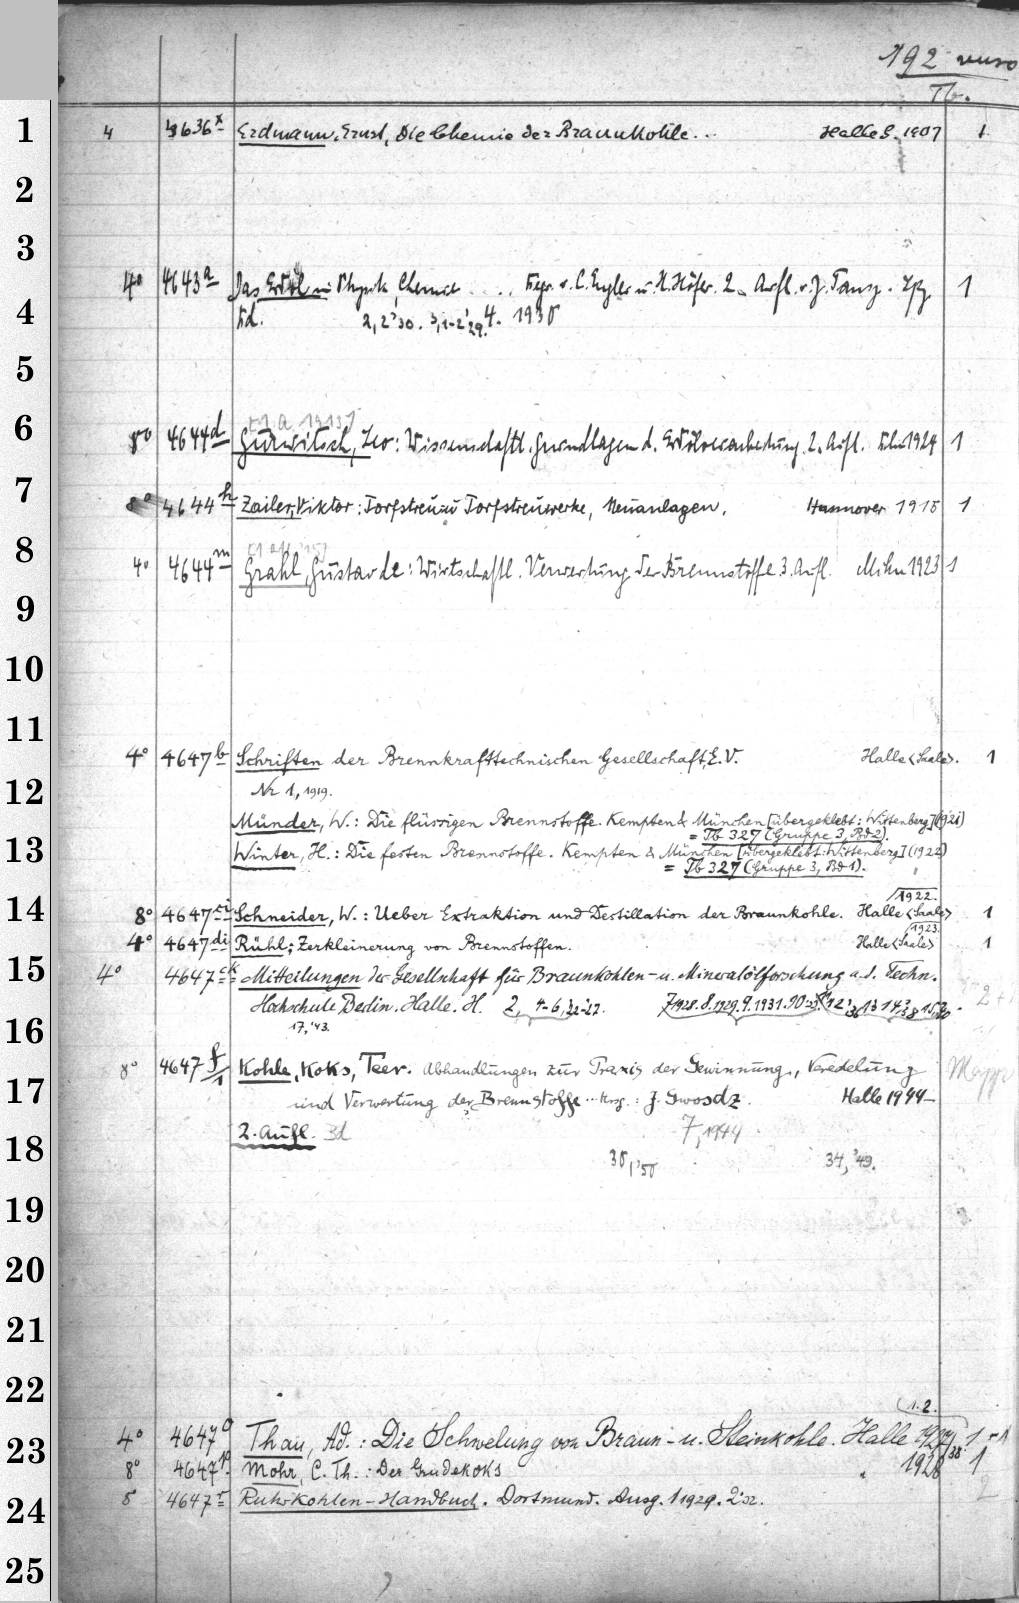 192 verso
Tb.
1
4 4636x Erdmann, Ernst, Die Chemie der Braunkohle... Halle S. 1907 1
2
3
4° 4643a Das Erdöl in Physik, Chemie . . . . Hgr. v. C. Engler u. H. Höfer. 2. Aufl. v. J. Tausz. Lpz. 1
4
Bd. 2,2'30. 3,1-2'29. 4. 1930
5
[1. A. 1913]
6
8° 4644d Gurwitsch, Leo: Wissenschaftl. Grundlagen d. Erdölverarbeitung. 2. Aufl. Bln 1924 1
7
8° 4644h Zailer, Viktor: Torfstreu u Torfstreuwerke, Neuanlagen. Hannover 1915 1
8
4° 4644m Grahl, Gustav de: Wirtschaftl. Verwertung der Brennstoffe 3. Aufl. Mchn 1923 1
9
10
11
4° 4647b Schriften der Brennkrafttechnischen Gesellschaft, E.V. Halle <Saale>. 1
12
Nr 1, 1919.
Münder, W.: Die flüssigen Brennstoffe. Kempten & München [übergeklebt: Wittenberg] (1921)
= Tb 327 (Gruppe 3, Bd 2).
13
Winter, H.: Die festen Brennstoffe. Kempten & München [übergeklebt: Wittenberg] (1922)
= Tb 327 (Gruppe 3, Bd 1).
1922.
14
8° 4647ci Schneider, W.: Ueber Extraktion und Destillation der Braunkohle. Halle <Saale> 1
1923.
4° 4647di Rühl; Zerkleinerung von Brennstoffen. Halle <Saale> 1
15
4° 4647ek Mitteilungen der Gesellschaft für Braunkohlen- u. Mineralölforschung a. d. Techn.
Hochschule Berlin. Halle. H. 2, 4-6, '22-'27. 7 1928. 8. 1929. 9. 1931. 10
16
17,'43.
8° 4647f/1 Kohle, Koks, Teer. Abhandlungen zur Praxis der Gewinnung, Veredelung Mappe
17
und Verwertung der Brennstoffe... Hrsg.: J. Gwosdz. Halle 1944-
2. Aufl. Bd 7, 1944
18
30,'50 34,'49.
19
20
21
22
1.2.
4° 4647o Thau, Ad.: Die Schwelung von Braun- u. Steinkohle. Halle 1927 1 + 1
23
38
8° 4647p Mohr, C. Th.: Der Grudekoks " 1928 1
8 4647r Ruhrkohlen-Handbuch. Dortmund. Ausg. 1 1929. 2'32. 2
24
25